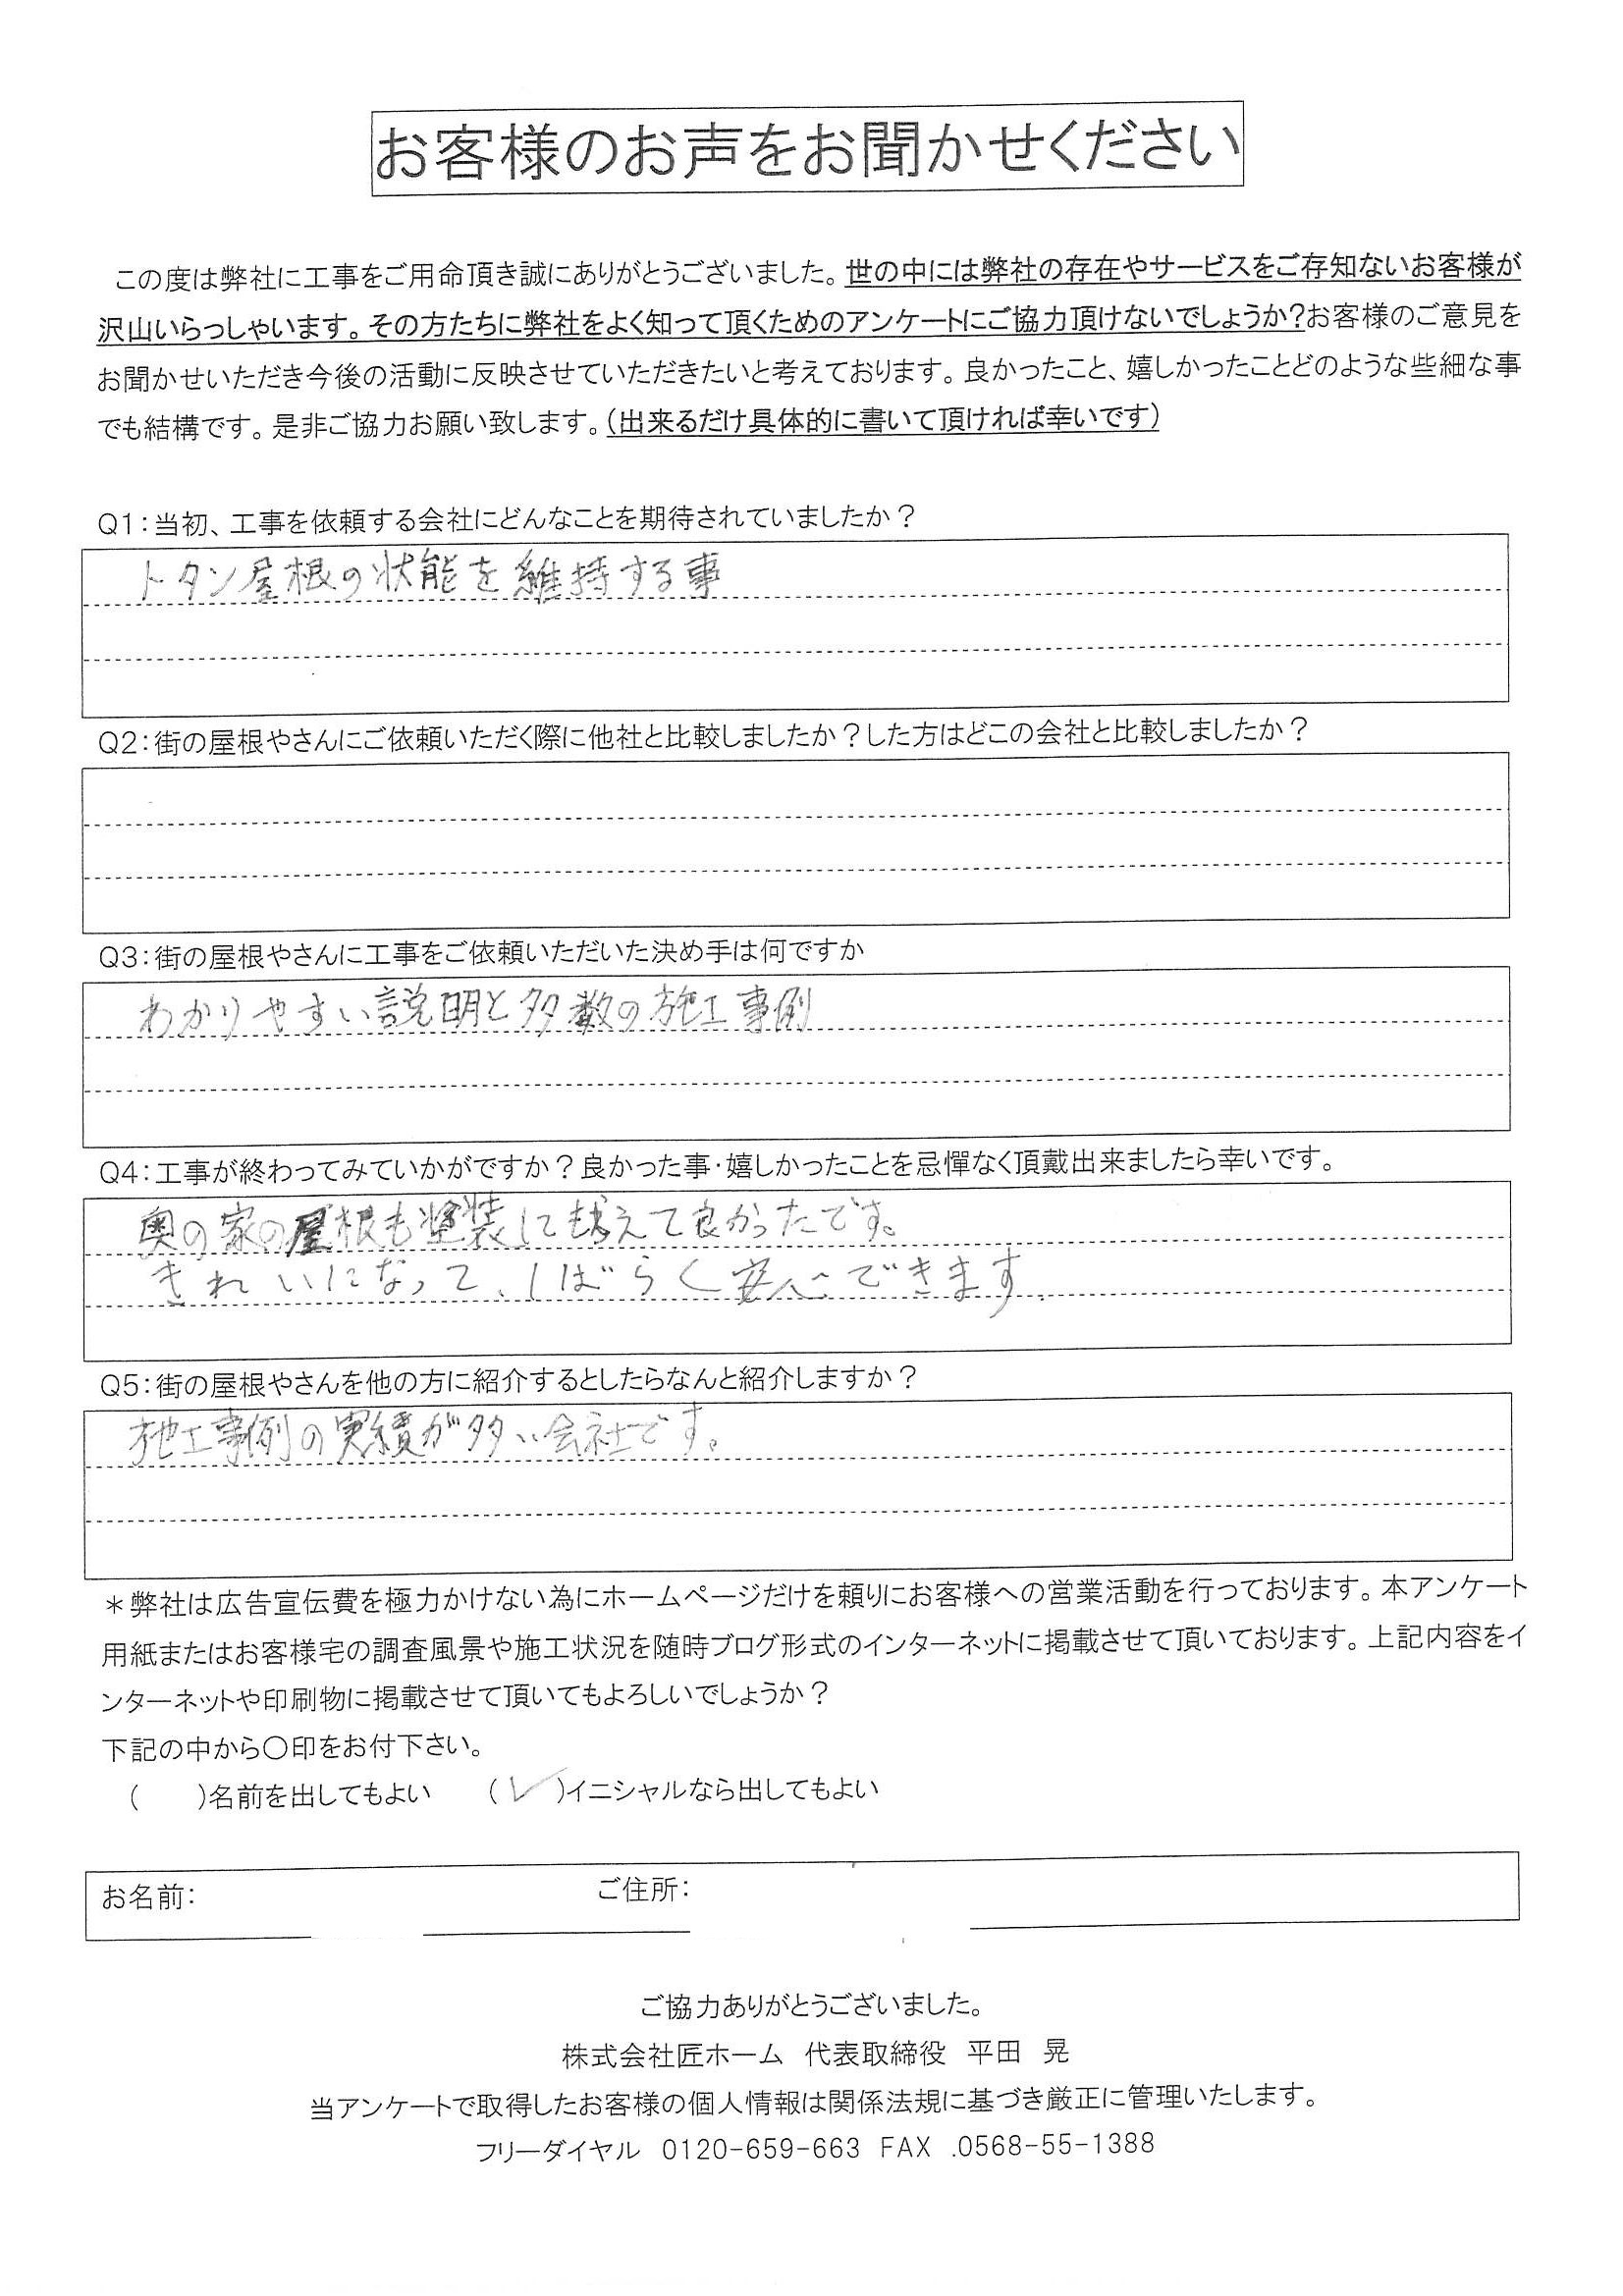 お客様のお声をお聞かせください
この度は弊社に工事をご用命頂き誠にありがとうございました。世の中には弊社の存在やサービスをご存知ないお客様が
沢山いらっしゃいます。その方たちに弊社をよく知って頂くためのアンケートにご協力頂けないでしょうか?お客様のご意見を
お聞かせいただき今後の活動に反映させていただきたいと考えております。良かったこと、嬉しかったことどのような些細な事
でも結構です。是非ご協力お願い致します。(出来るだけ具体的に書いて頂ければ幸いです)
Q1:当初、工事を依頼する会社にどんなことを期待されていましたか?
トタン屋根の状態を維持する事
Q2:街の屋根やさんにご依頼いただく際に他社と比較しましたか?した方はどこの会社と比較しましたか?
Q3:街の屋根やさんに工事をご依頼いただいた決め手は何ですか
わかりやすい説明と多数の施工事例
Q4:工事が終わってみていかがですか?良かった事・嬉しかったことを忌憚なく頂戴出来ましたら幸いです。
奥の家の屋根も塗装してもらえて良かったです。
きれいになって、しばらく安心できます
Q5:街の屋根やさんを他の方に紹介するとしたらなんと紹介しますか?
施工事例の実績が多い会社です。
*弊社は広告宣伝費を極力かけない為にホームページだけを頼りにお客様への営業活動を行っております。本アンケート
用紙またはお客様宅の調査風景や施工状況を随時ブログ形式のインターネットに掲載させて頂いております。上記内容をイ
ンターネットや印刷物に掲載させて頂いてもよろしいでしょうか?
下記の中から〇印をお付下さい。
(　　)名前を出してもよい　　(✓)イニシャルなら出してもよい
お名前:　　ご住所:
ご協力ありがとうございました。
株式会社匠ホーム　代表取締役　平田　晃
当アンケートで取得したお客様の個人情報は関係法規に基づき厳正に管理いたします。
フリーダイヤル　0120-659-663 FAX .0568-55-1388